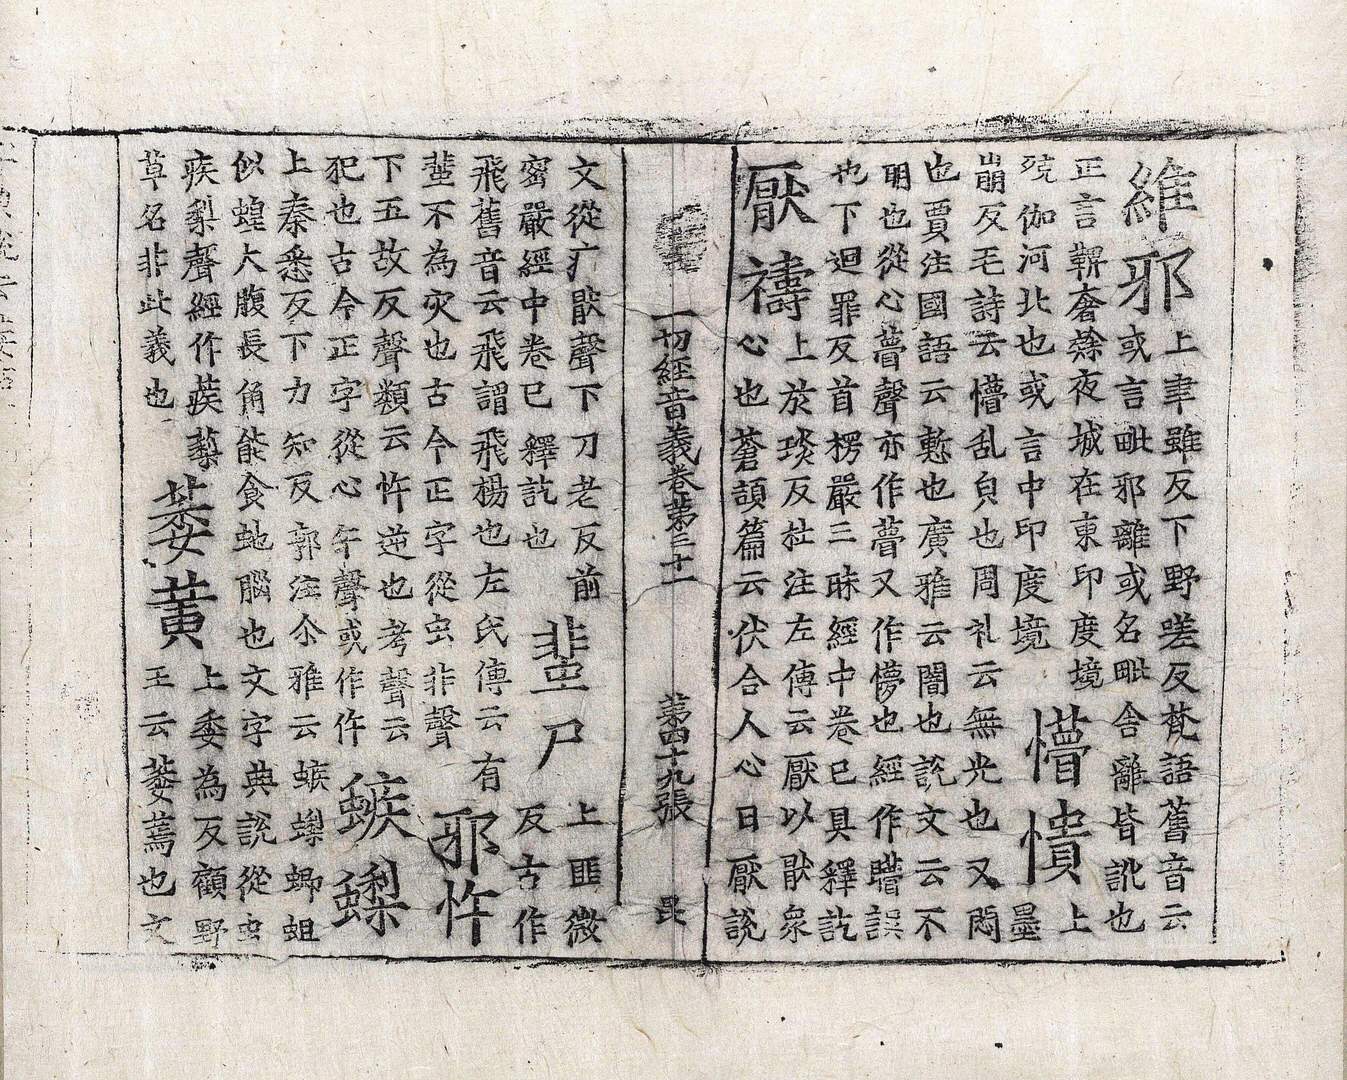 維邪上聿雖反下野嗟反梵語舊音云
或言毗邪離或名毗舍離皆訛也
正言鞞奢㰆夜城在東印度境
殑伽河北也或言中印度境懵憒上墨
崩反毛詩云懵乱皃也周礼云無光也又悶
也賈注國語云慙也廣雅云闇也說文云不
明也從心瞢聲亦作瞢又作儚也經作矒誤
也下迴罪反首楞嚴三昧經中卷已具釋訖
厭禱上於琰反杜注左傳云厭以猒衆
心也蒼頡篇云伏合人心曰厭說
一切經音義卷第三十一 第四十九張 畏
文從疒猒聲下刀老反前
密嚴經中卷已釋訖也蜚尸上匪微
反古作
飛舊音云飛謂飛楊也左氏傳云有
蜚不為灾也古今正字從虫非聲邪忤
下五故反聲類云忤逆也考聲云
犯也古今正字從心午聲或作仵蛷螺
上秦悉反下力知反郭注尒雅云蝍蛆
似蝗大腹長角能食虵腦也文字典說從虫
疾梨聲經作蒺蔾萎黃上委為反顧野
王云萎蔫也文
草名非此義也